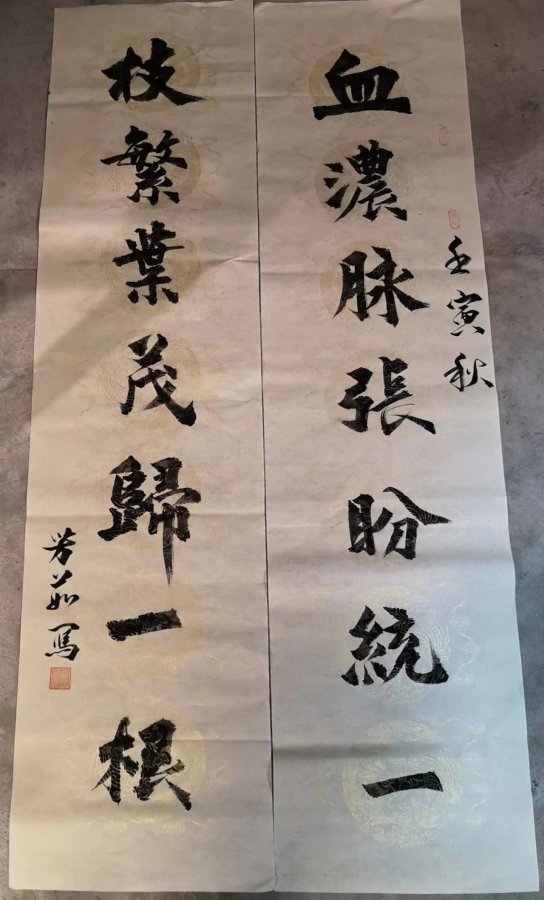 壬寅秋
血濃脉張盼統一
枝繁葉茂歸一根
芳茹寫